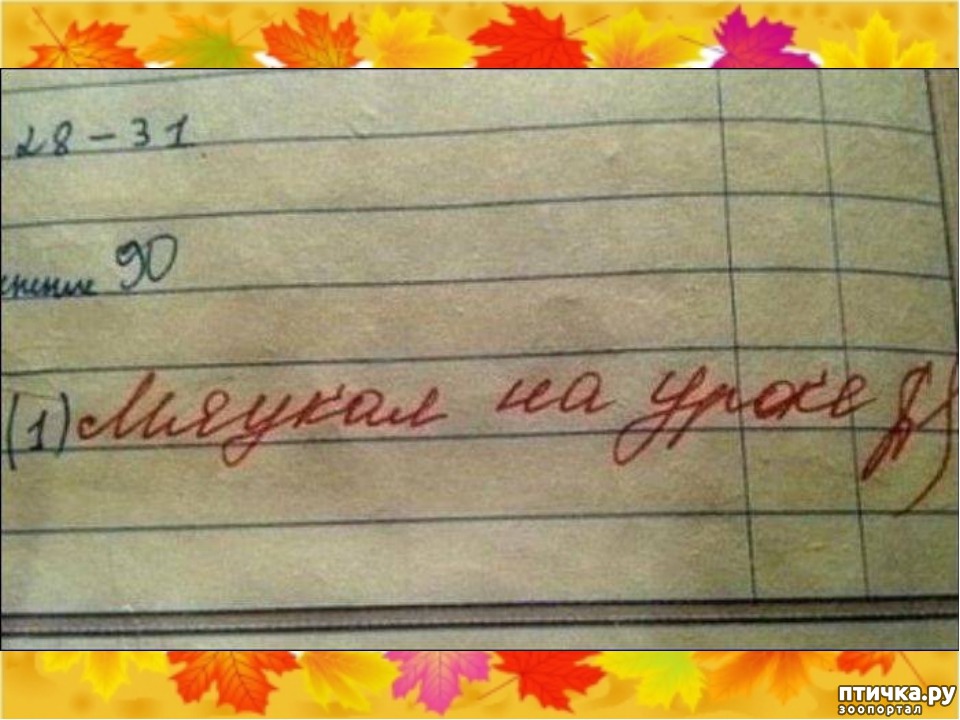 28-31
90
(1) Мяукал на уроке
птичка.ру
зоопортал